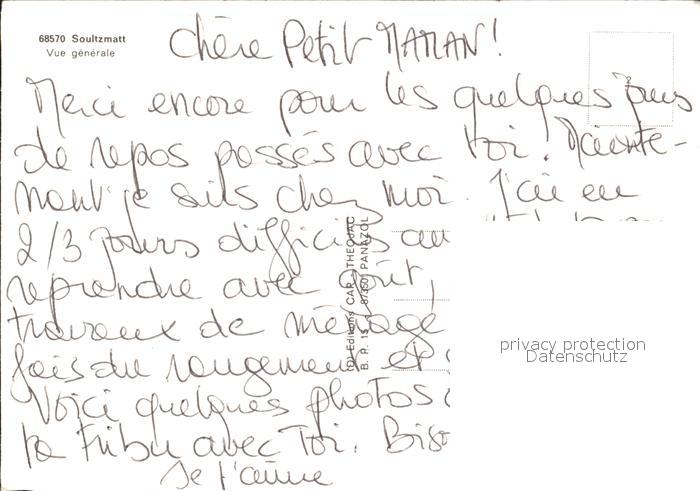 68570 Soultzmatt
Vue générale
Chère Petit MAMAN!
Merci encore pour les quelques jours
de repos passés avec toi. Mainte-
nant je suis chez moi. J'ai eu
2/3 jours difficiles au
reprendre avec goût,
travaux de ménage
fais du rangement et
Voici quelques photos
ta tribu avec Toi. Biso
Je t'aime
(c) Editions CAP - THEOJAC
B. P. 15 87350 PANAZOL
privacy protection
Datenschutz